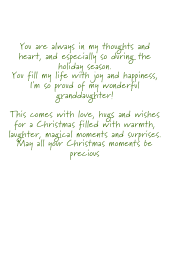 You are always in my thoughts and
heart, and especially so during the
holiday season.
You fill my life with joy and happiness,
I'm so proud of my wonderful
granddaughter!
This comes with love, hugs and wishes
for a Christmas filled with warmth,
laughter, magical moments and surprises.
May all your Christmas moments be
precious